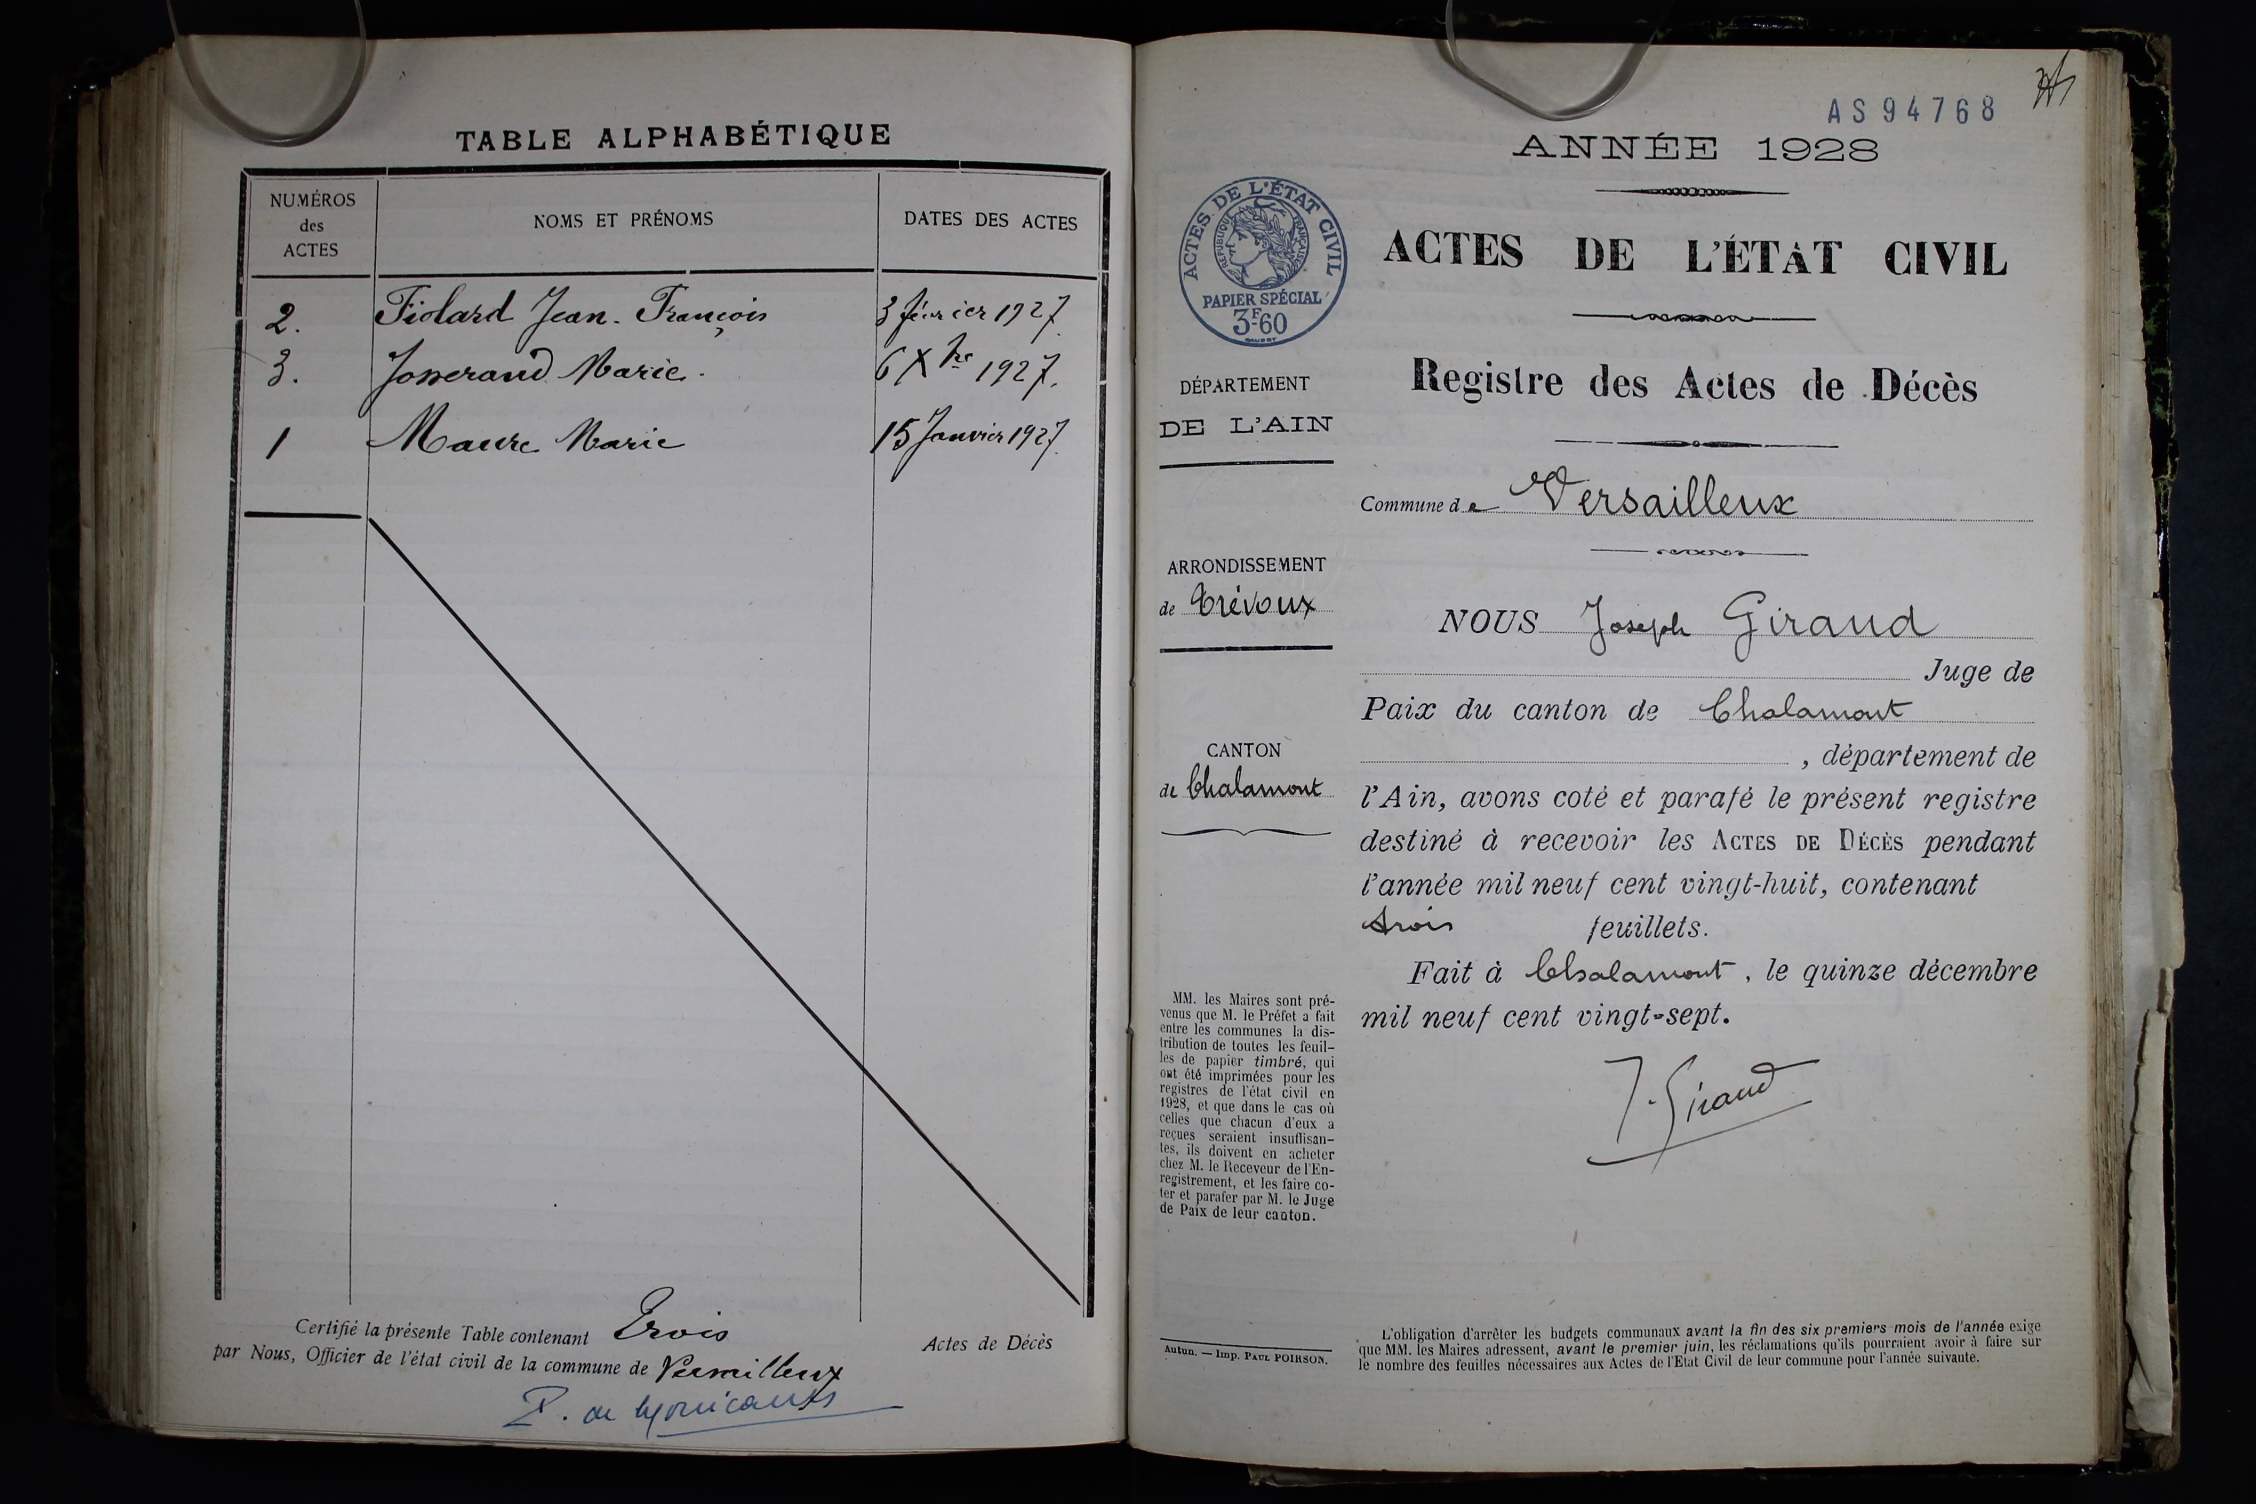 TABLE ALPHABÉTIQUE
NUMÉROS des ACTES
NOMS ET PRÉNOMS
DATES DES ACTES
2. Fiolard Jean-François 3 février 1927
3. Josserand Marie. 6 Xbre 1927.
1 Maure Marie 15 Janvier 1927.
Certifié la présente Table contenant Trois Actes de Décès
par Nous, Officier de l'état civil de la commune de Versailleux
AS94768
ANNÉE 1928
ACTES DE L'ÉTAT CIVIL
RÉPUBLIQUE FRANÇAISE
PAPIER SPÉCIAL
3F60
DÉPARTEMENT
DE L'AIN
ARRONDISSEMENT
de Trévoux
CANTON
de Chalamont
MM. les Maires sont pré-
venus que M. le Préfet a fait
entre les communes la dis-
tribution de toutes les feuil-
les de papier timbré, qui
ont été imprimées pour les
registres de l'état civil en
1928, et que dans le cas où
celles que chacun d'eux a
reçues seraient insuffisan-
tes, ils doivent en acheter
chez M. le Receveur de l'En-
registrement, et les faire co-
ter et parafer par M. le Juge
de Paix de leur canton.
Autun. — Imp. PAUL POIRSON.
ACTES DE L'ÉTAT CIVIL
Registre des Actes de Décès
Commune de Versailleux
NOUS Joseph Giraud
Juge de
Paix du canton de Chalamont
, département de
l'Ain, avons coté et parafé le présent registre
destiné à recevoir les ACTES DE DÉCÈS pendant
l'année mil neuf cent vingt-huit, contenant
trois feuillets.
Fait à Chalamont, le quinze décembre
mil neuf cent vingt-sept.
J. Giraud
L'obligation d'arrêter les budgets communaux avant la fin des six premiers mois de l'année exige
que MM. les Maires adressent, avant le premier juin, les réclamations qu'ils pourraient avoir à faire sur
le nombre des feuilles nécessaires aux Actes de l'Etat Civil de leur commune pour l'année suivante.